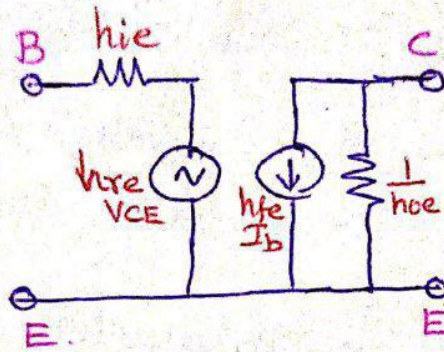 B
hie
C
hre
VCE
hfe
Ib
1/hoe
E.
E